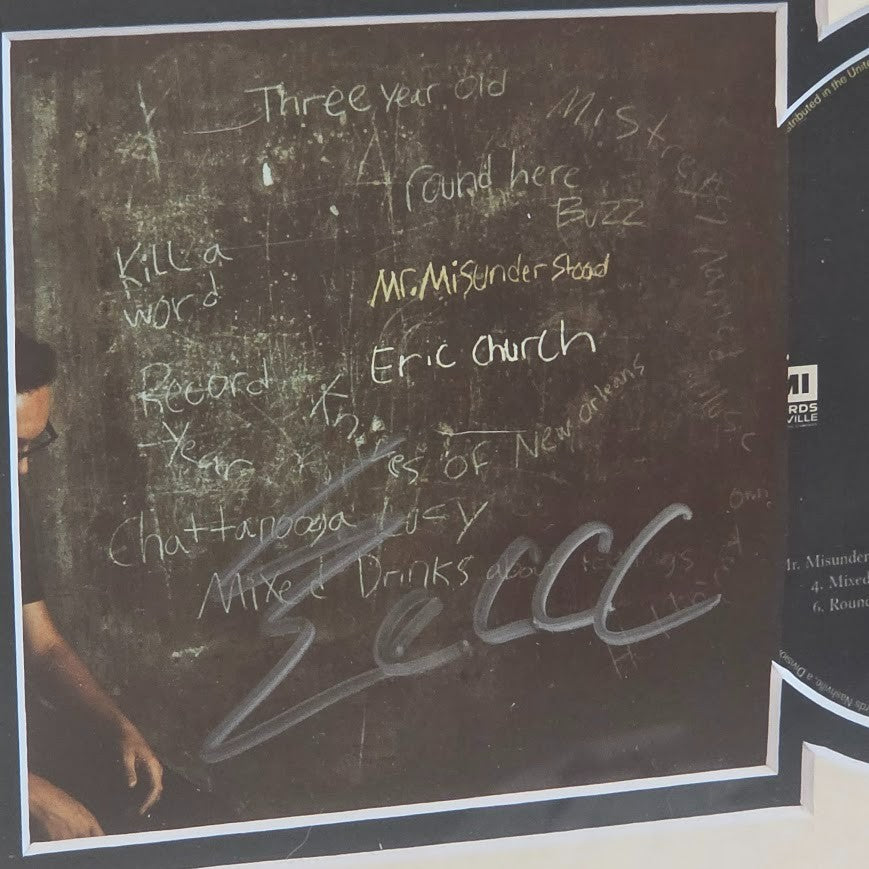 Three year old
Mistress Named Music
round here
Buzz
Kill a
word
Mr. Misunderstood
Eric Church
Record
Year
Knives of New Orleans
Chattanooga Lucy
Mixed Drinks about feelings
tributed in the Unite
MI
RDS
VILLE
Mr. Misunder
4. Mixed
6. Round
rds Nashville, a Divisio